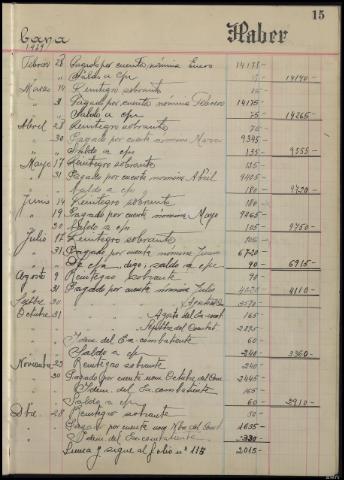 15
Caya
Haber
1939
Febrero 28 Pagado por cuenta nómina Enero 14175-
" " Saldo a c/n 15- 14190-
Marzo 14 Reintegro sobrante 15-
" 31 Pagado por cuenta nómina Febrero 14175-
Saldo a c/n 75- 14265-
Abril 28 Reintegro sobrante 75-
" 30 Pagado por cuenta nomina Marzo 9345-
" " Saldo a c/n 135- 9555-
Mayo 17 Reintegro sobrante 135-
" 31 Pagado por cuenta nomina Abril 9405-
Saldo a c/n 180- 9720-
Junio 14 Reintegro sobrante 180-
" 19 Pagado por cuenta nómina Mayo 9465-
" 30 Saldo a c/n 105- 9750-
Julio 17 Reintegro sobrante 105-
" 31 Pagado por cuenta nomina Junio 6720-
" " digo, saldo a c/n 90- 6915-
Agosto 9 Reintegro sobrante 90-
" 31 Pagado por cuenta nomina Julio 4110-
30
Octubre 31 Agosto del 165-
Septbre del 2895-
Idem del Ex-combatiente 60-
Saldo a c/n 240- 3360-
Noviembre Reintegro sobrante 240-
" 30 Pagado por cuenta nom Octubre 2445-
Idem del Ex-combatiente 165-
Saldo a c/n 60- 2910-
Dbre. 28 Reintegro sobrante
Pagado por cuenta nom Nbre 1635-
Idem del Ex-combatiente 330-
Suma y sigue al folio nº 115 2015-